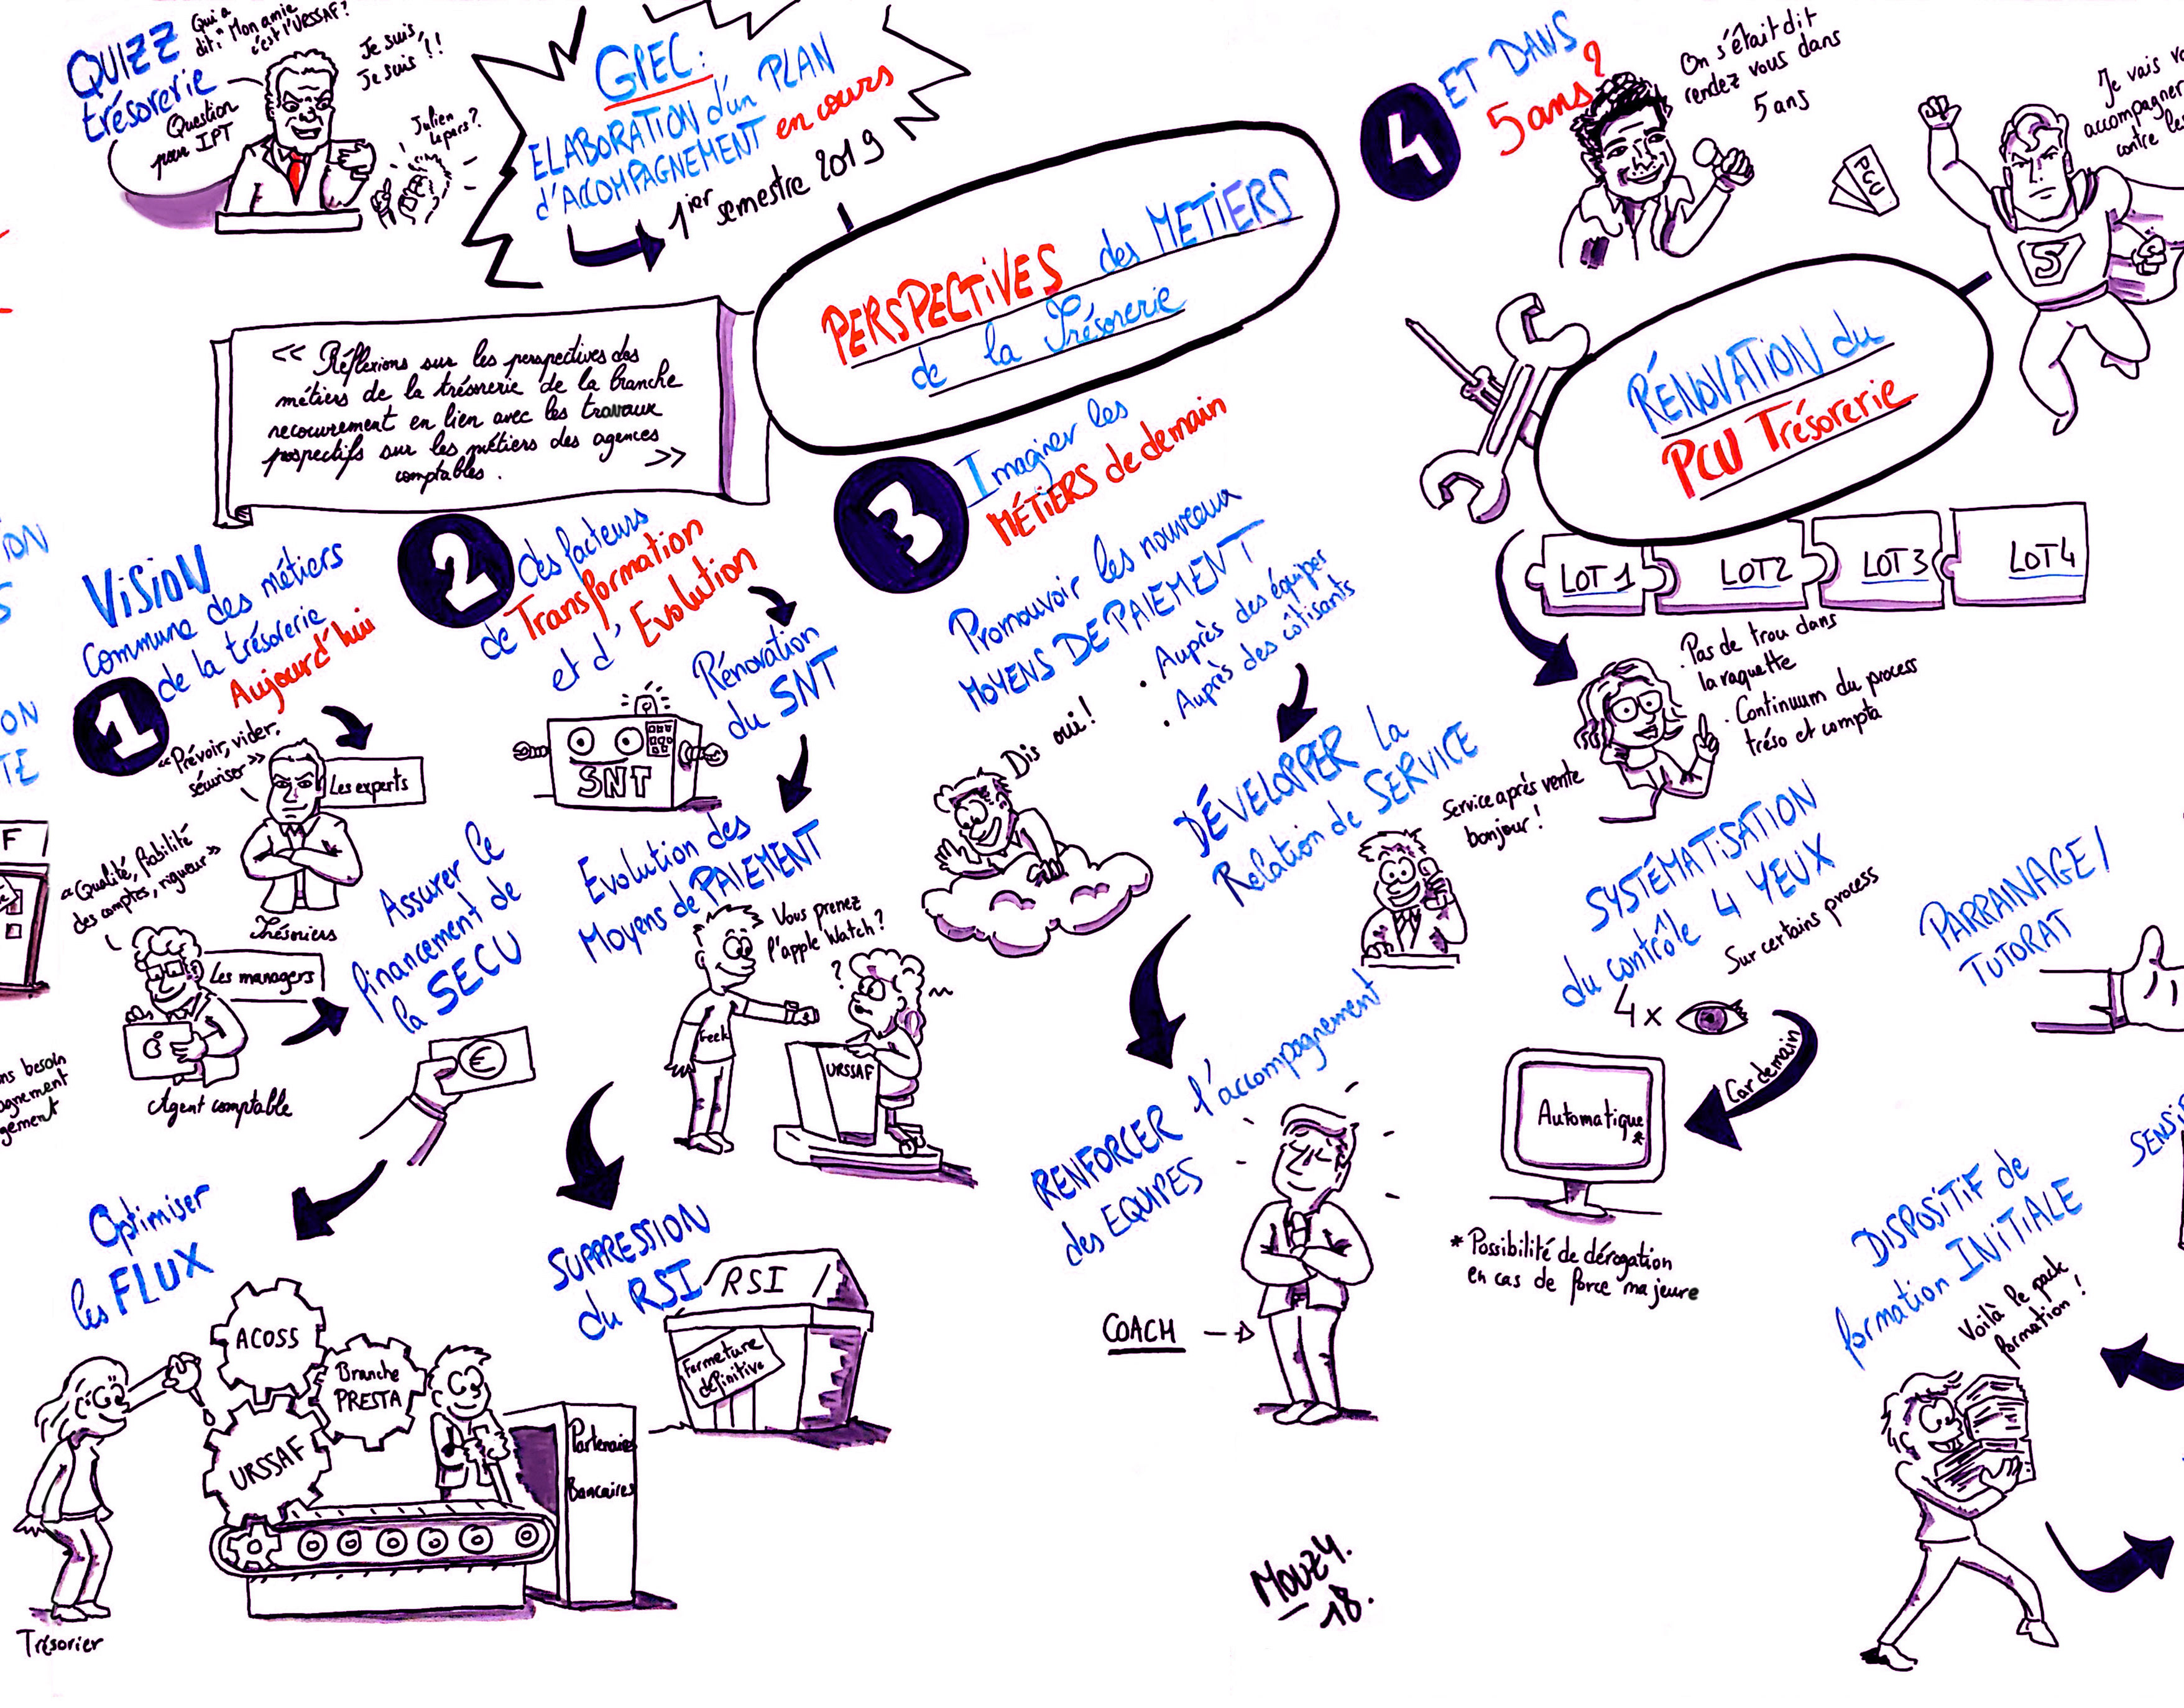 QUIZZ
trésorerie
Qui a
dit: "Mon amie
c'est l'URSSAF?
Je suis,
Je suis!!
Question
pour IPT
Julien
Lepers?
GPEC:
ELABORATION d'un PLAN
d'ACCOMPAGNEMENT en cours
1ier semestre 2019
PERSPECTIVES des METIERS
de la Trésorerie
<< Réflexions sur les perspectives des
métiers de la trésorerie de la branche
recouvrement en lien avec les travaux
prospectifs sur les métiers des agences
comptables. >>
1
VISION
Commune des métiers
de la trésorerie
Aujourd'hui
"Prévoir, vider,
sécuriser"
Les experts
Trésoriers
"Qualité, fiabilité
des comptes, rigueur"
Les managers
Agent comptable
Assurer le
financement de
la SECU
€
Optimiser
les FLUX
ACOSS
Branche
PRESTA
URSSAF
Partenaires
Bancaires
Trésorier
2
des facteurs
de Transformation
et d'Evolution
Rénovation
du SNT
SNT
Evolution des
Moyens de PAIEMENT
Vous prenez
l'apple Watch?
?
Geek
URSSAF
SUPPRESSION
du RSI
RSI
Fermeture
définitive
3
Imaginer les
MÉTIERS de demain
Promouvoir les nouveaux
MOYENS DE PAIEMENT
. Auprès des équipes
. Auprès des côtisants
Dis oui!
DÉVELOPPER la
Relation de SERVICE
Service après vente
bonjour!
RENFORCER l'accompagnement
des EQUIPES
COACH
4
ET DANS
5 ans?
On s'était dit
rendez vous dans
5 ans
PCU
Je vais
accompagner
contre les
S
RÉNOVATION du
PCU Trésorerie
LOT 1
LOT2
LOT 3
LOT4
. Pas de trou dans
la raquette
. Continuum du process
tréso et compta
SYSTÉMATISATION
du contrôle 4 YEUX
Sur certains process
4 x
Car demain
Automatique*
* Possibilité de dérogation
en cas de force majeure
PARRAINAGE/
TUTORAT
DISPOSITIF de
formation INITIALE
Voilà le pack
formation!
SENSI
MOUZY.
18.
ION
S
ON
TE
F
ns besoin
agnement
gement